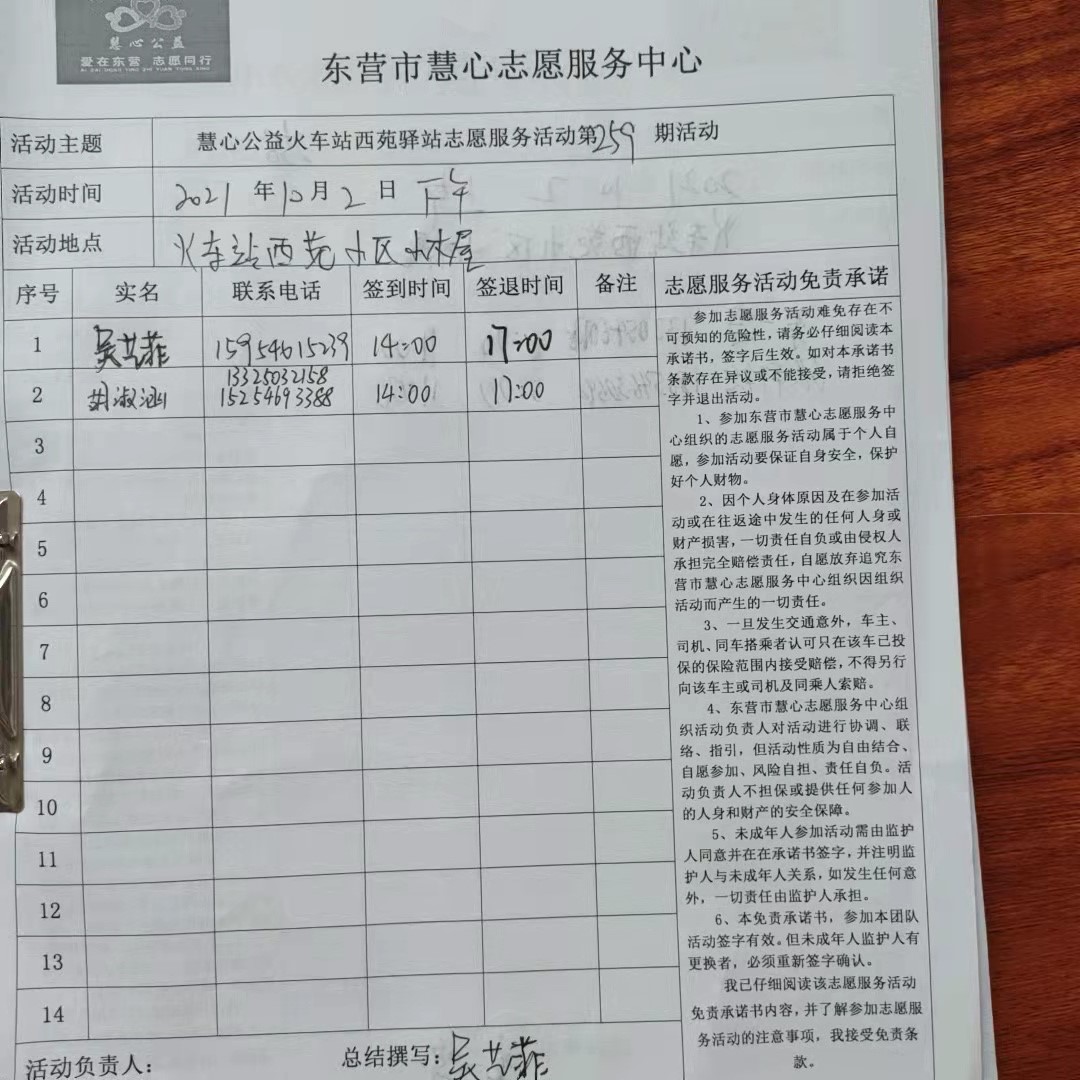 慧心公益
爱在东营 志愿同行
AI ZAI DONG YING ZHI YUAN TONG XING
东营市慧心志愿服务中心
活动主题 慧心公益火车站西苑驿站志愿服务活动第259期活动
活动时间 2021年10月2日 下午
活动地点 火车站西苑小区小木屋
序号 实名 联系电话 签到时间 签退时间 备注 志愿服务活动免责承诺
1 吴芸菲 15954615239 14:00 17:00
13325032158
2 胡淑涵 15254693388 14:00 17:00
3
4
5
6
7
8
9
10
11
12
13
14
参加志愿服务活动难免存在不
可预知的危险性，请务必仔细阅读本
承诺书，签字后生效。如对本承诺书
条款存在异议或不能接受，请拒绝签
字并退出活动。
1、参加东营市慧心志愿服务中
心组织的志愿服务活动属于个人自
愿，参加活动要保证自身安全，保护
好个人财物。
2、因个人身体原因及在参加活
动或在往返途中发生的任何人身或
财产损害，一切责任自负或由侵权人
承担完全赔偿责任，自愿放弃追究东
营市慧心志愿服务中心组织因组织
活动而产生的一切责任。
3、一旦发生交通意外，车主、
司机、同车搭乘者认可只在该车已投
保的保险范围内接受赔偿，不得另行
向该车主或司机及同乘人索赔。
4、东营市慧心志愿服务中心组
织活动负责人对活动进行协调、联
络、指引，但活动性质为自由结合、
自愿参加、风险自担、责任自负。活
动负责人不担保或提供任何参加人
的人身和财产的安全保障。
5、未成年人参加活动需由监护
人同意并在在承诺书签字，并注明监
护人与未成年人关系，如发生任何意
外，一切责任由监护人承担。
6、本免责承诺书，参加本团队
活动签字有效。但未成年人监护人有
更换者，必须重新签字确认。
我已仔细阅读该志愿服务活动
免责承诺书内容，并了解参加志愿服
务活动的注意事项，我接受免责条
款。
活动负责人： 总结撰写：吴芸菲